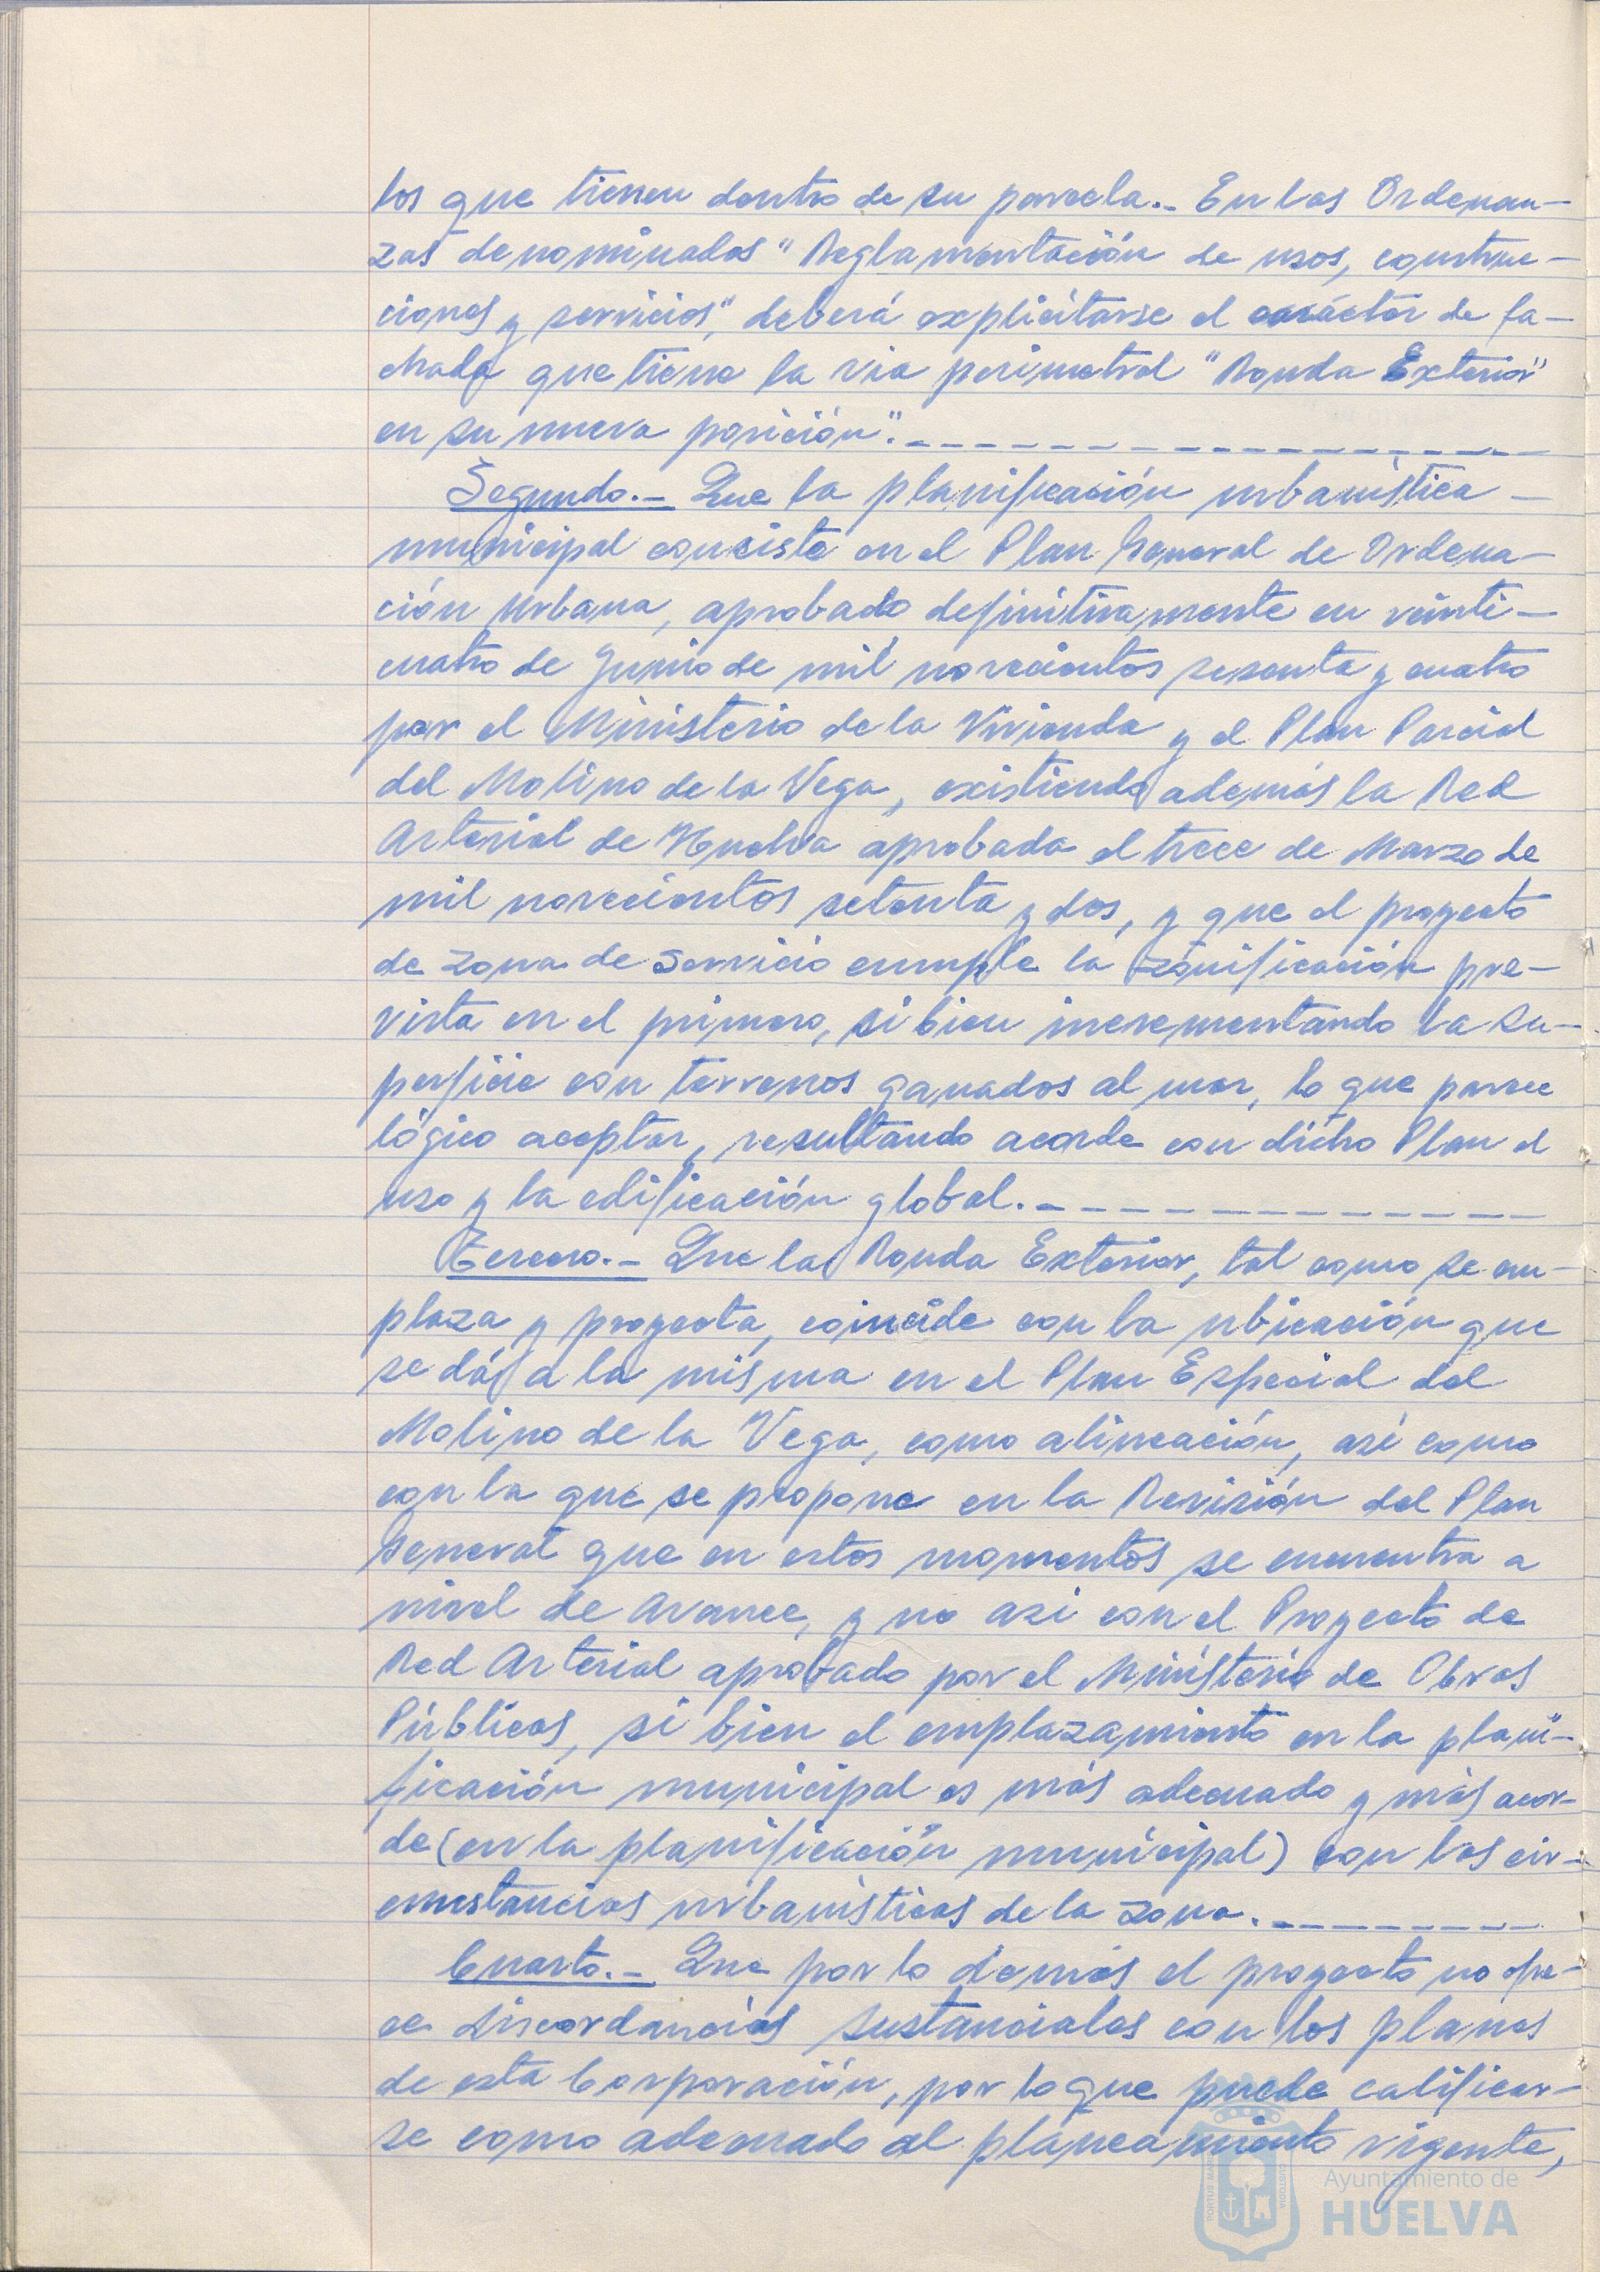 tos que tienen dentro de su parcela.- En las Ordenan-
zas denominadas "Reglamentación de usos, construc-
ciones y servicios", deberá explicitarse el carácter de fa-
chada que tiene la via perimetral "Ronda Exterior"
en su nueva posición".- - - - - - - - - - - - - - - -
Segundo.- Que la planificación urbanística -
municipal consiste en el Plan General de Ordena-
ción Urbana, aprobado definitivamente en veinti-
cuatro de Junio de mil novecientos sesenta y cuatro
por el Ministerio de la Vivienda y el Plan Parcial
del Molino de la Vega, existiendo además la Red
Arterial de Huelva aprobada el trece de Marzo de
mil novecientos setenta y dos, y que el proyecto
de zona de servicio cumple la zonificación pre-
vista en el primero, si bien incrementando la su-
perficie con terrenos ganados al mar, lo que parece
lógico aceptar, resultando acorde con dicho Plan el
uso y la edificación global.- - - - - - - - - - - -
Tercero.- Que la Ronda Exterior, tal como se em-
plaza y proyecta, coincide con la ubicación que
se dá a la misma en el Plan Especial del
Molino de la Vega, como alineación, así como
con la que se propone en la Revisión del Plan
General que en estos momentos se encuentra a
nivel de Avance, y no asi con el Proyecto de
Red Arterial aprobado por el Ministerio de Obras
Públicas, si bien el emplazamiento en la plani-
ficación municipal es más adecuado y más acor-
de (en la planificación municipal) con las cir-
cunstancias urbanísticas de la zona.- - - - - - -
Cuarto.- Que por lo demás el proyecto no ofre-
ce discordancias sustanciales con los planes
de esta Corporación, por lo que puede calificar-
se como adecuado al planeamiento vigente,
Ayuntamiento de
HUELVA